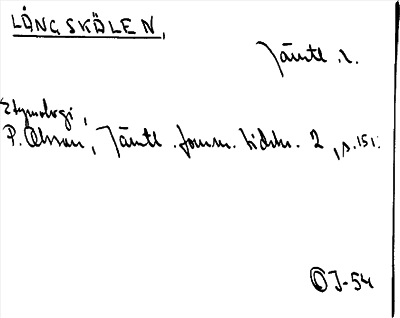 LÅNGSKÄLEN,
Jämtl. l.
Etymologi,
P. Olsson, Jämtl. fornm. tidskr. 2, s. 151.
OJ-54